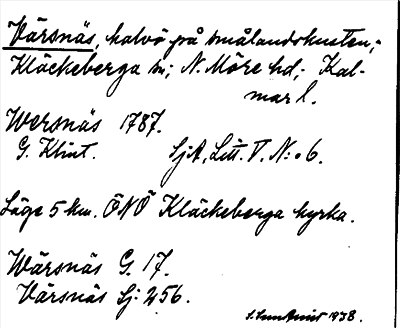 Värsnäs, halvö på Smålandskusten,-
Kläckeberga sn; N. Möre hd,- Kal-
mar l.
Wersnäs 1787.
G. Klint. SjA, Litt. V. N:o 6.
Läge 5 km. ÖNÖ Kläckeberga kyrka.
Wärsnäs G. 17.
Värsnäs Sj: 256.
1938.